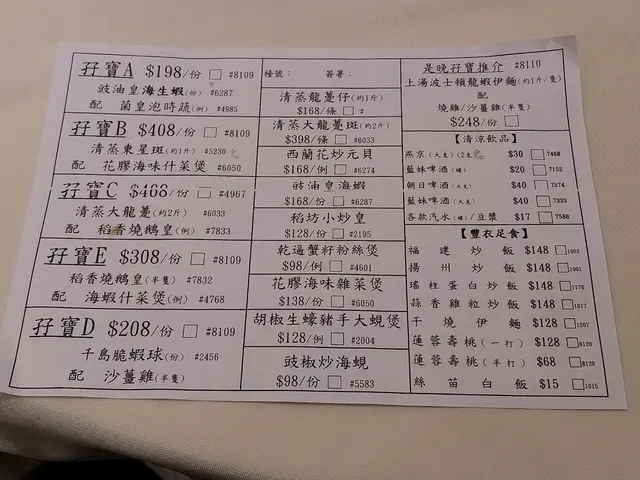 孖寶A $198/份 □ #8109
豉油皇海生蝦 #6287
配 菌皇泡時蔬(例) #4985
孖寶B $408/份 □ #8109
清蒸東星斑(約1斤) #5230
配 花膠海味什菜煲 #6050
孖寶C $468/份 □ #4967
清蒸大龍躉(約2斤) #6033
配 稻香燒鵝皇(例) #7833
孖寶E $308/份 □ #8109
稻香燒鵝皇(半隻) #7832
配 海蝦什菜煲(例) #4768
孖寶D $208/份 □ #8109
千島脆蝦球(份) #2456
配 沙薑雞(半隻)
檯號: 簽署:
清蒸龍躉仔(約1斤)
$168/條 □ #
清蒸大龍躉斑(約2斤)
$398/條 □ #6033
西蘭花炒元貝
$168/例 □ #6274
豉油皇海蝦
$168/份 □ #6287
稻坊小炒皇
$128/份 □ #2195
乾逼蟹籽粉絲煲
$98/例 □ #4601
花膠海味雜菜煲
$138/份 □ #6050
胡椒生蠔豬手大蜆煲
$128/例 □ #2004
豉椒炒海蜆
$98/份 □ #5583
是晚孖寶推介 #8110
上湯波士頓龍蝦伊麵(約1斤/隻)
配
燒雞/沙薑雞(半隻)
$248/份 □
【清涼飲品】
燕京(大支) $30 □ 7468
藍妹啤酒(罐) $20 □ 7152
朝日啤酒(大支) $40 □ 7374
藍妹啤酒(大支) $40 □ 7333
各款汽水(罐)/豆漿 $17 □ 7586
【豐衣足食】
福建炒飯 $148 □ 1003
揚州炒飯 $148 □ 1001
瑤柱蛋白炒飯 $148 □ 1176
蒜香雞粒炒飯 $148 □ 1017
干燒伊麵 $128 □ 1207
蓮蓉壽桃(一打) $128 □ 8120
蓮蓉壽桃(半打) $68 □ 8120
絲苗白飯 $15 □ 1015